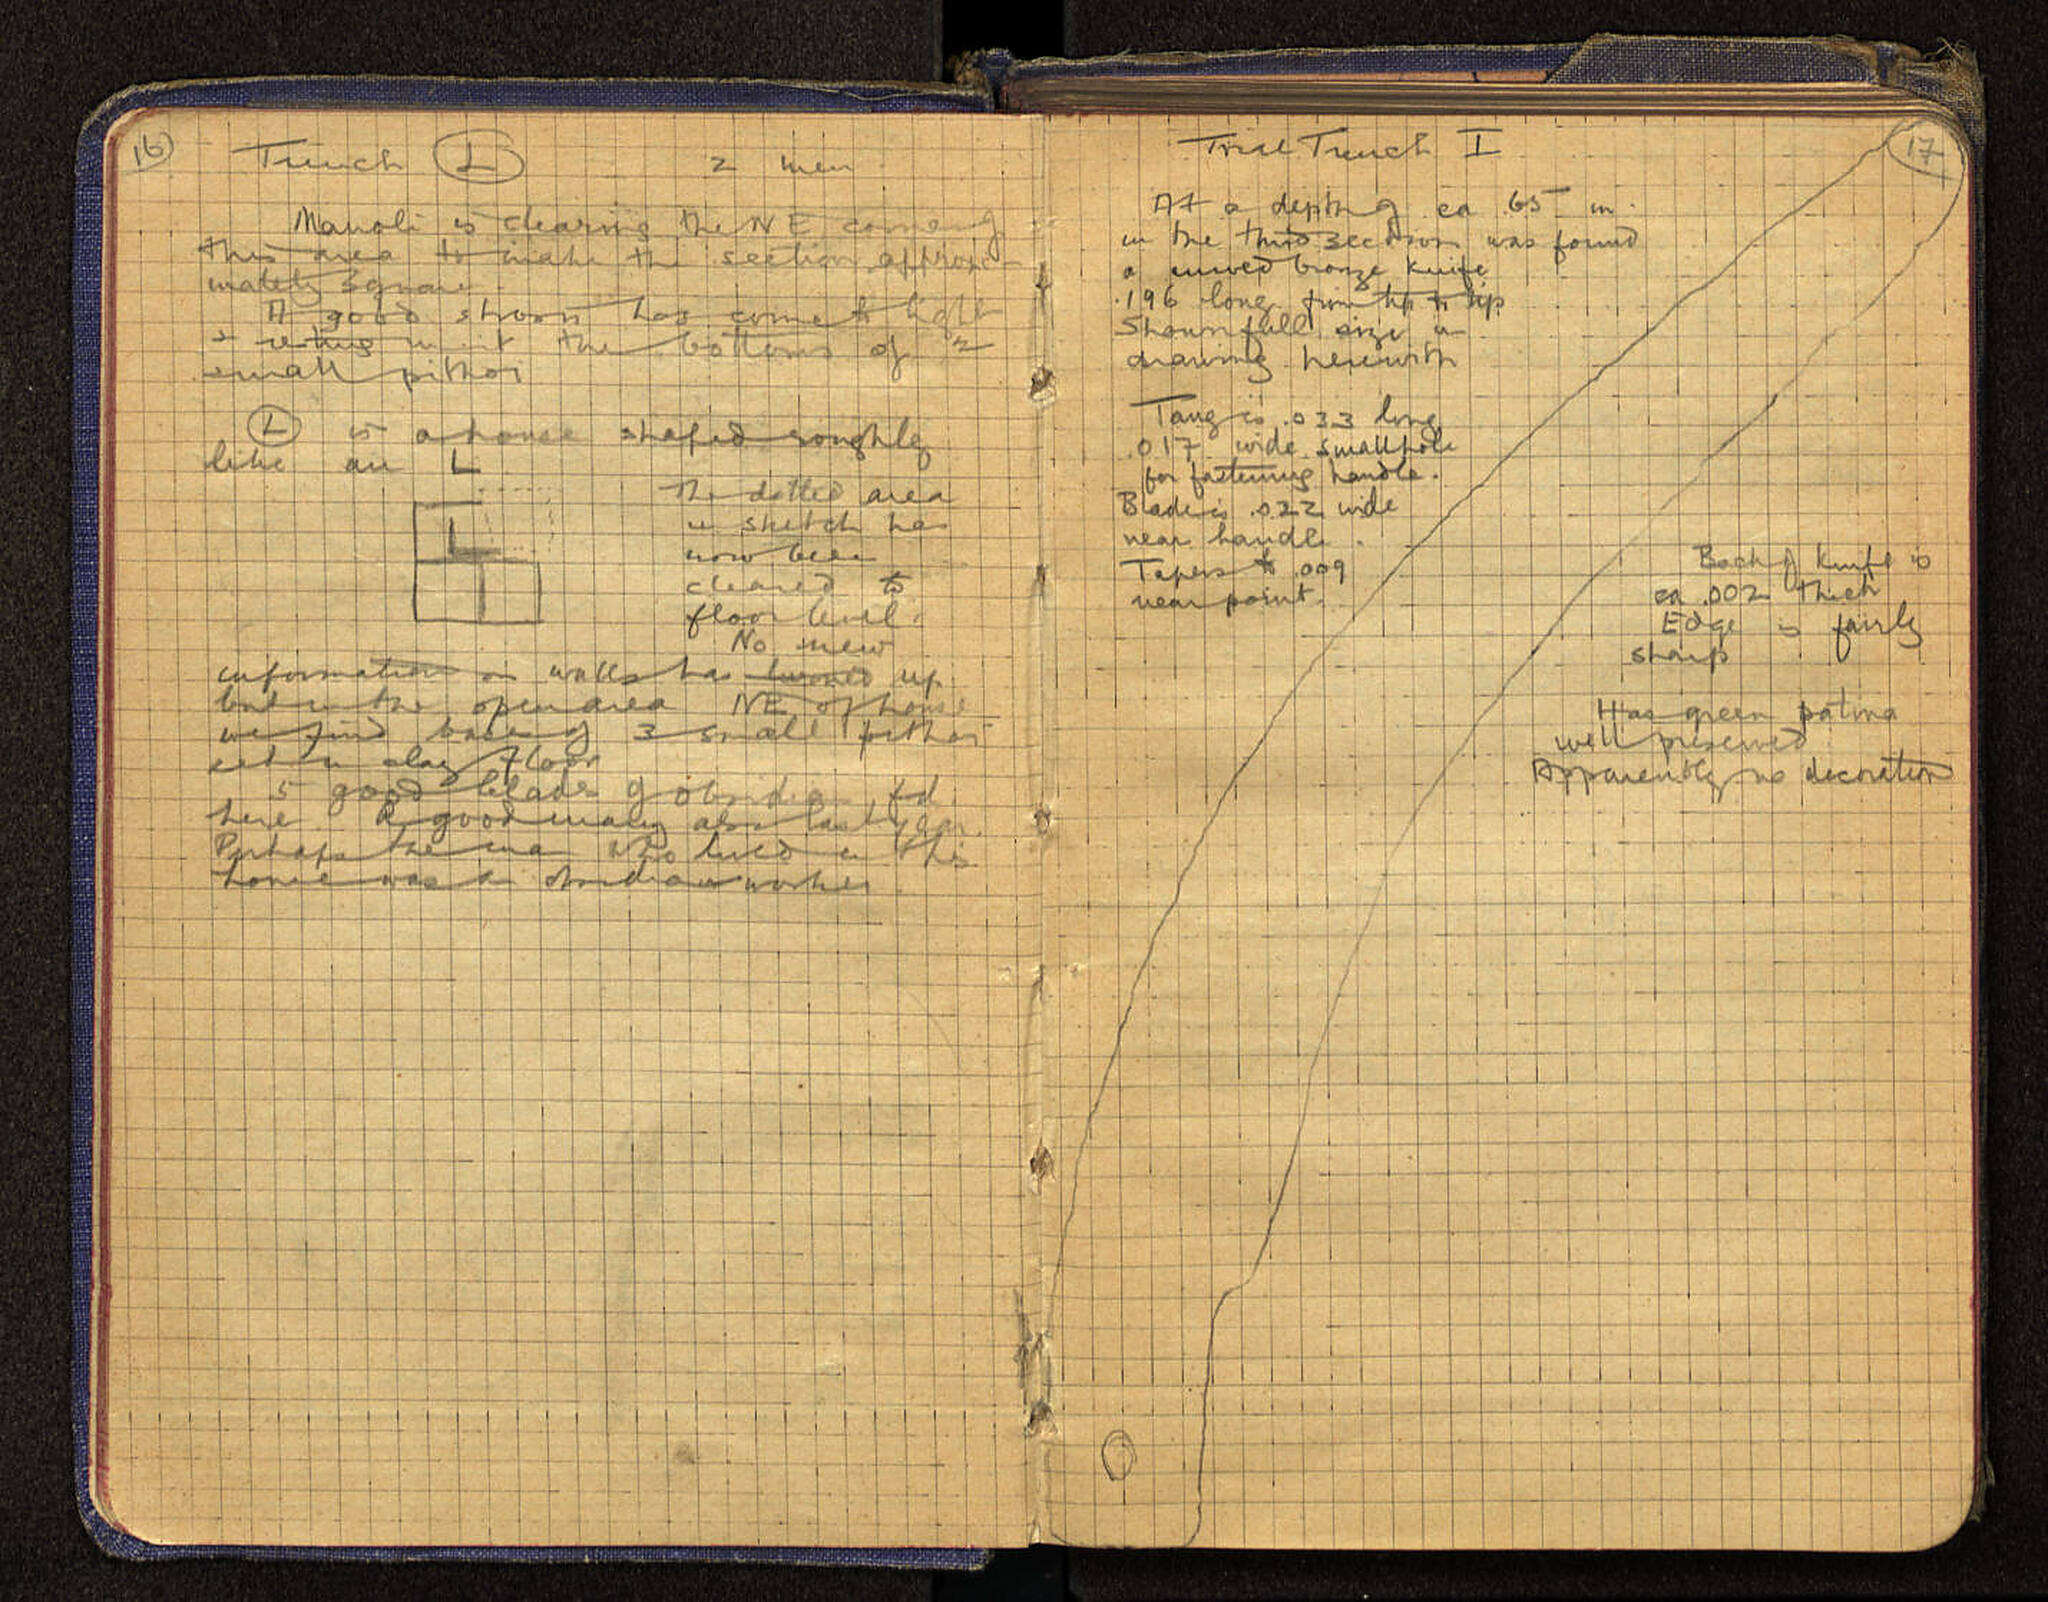 16
Trench L 2 men
Manoli is clearing the NE corner of
this area to make the section approxi-
mately square.
A good stroses has come to light
& resting in it the bottoms of 2
small pithoi
L is a house shaped roughly
like an L
The dotted area
in sketch has
now been
cleared to
floor level.
No new
information on walls has turned up
but in the open area NE of house
we find bases of 3 small pithoi
set in clay floor
5 good blades of obsidian fd
here. A good many also last year.
Perhaps the man who lived in this
house was an obsidian worker
17
Trial Trench I
At a depth of ca .65 m.
in the third section was found
a curved bronze knife
.196 long from tip to tip
Shown full size in
drawing herewith
Tang is .033 long
.017 wide small hole
for fastening handle.
Blade is .022 wide
near handle.
Tapers to .009
near point.
Back of knife is
ca .002 thick
Edge is fairly
sharp
Has green patina
well preserved
Apparently no decoration